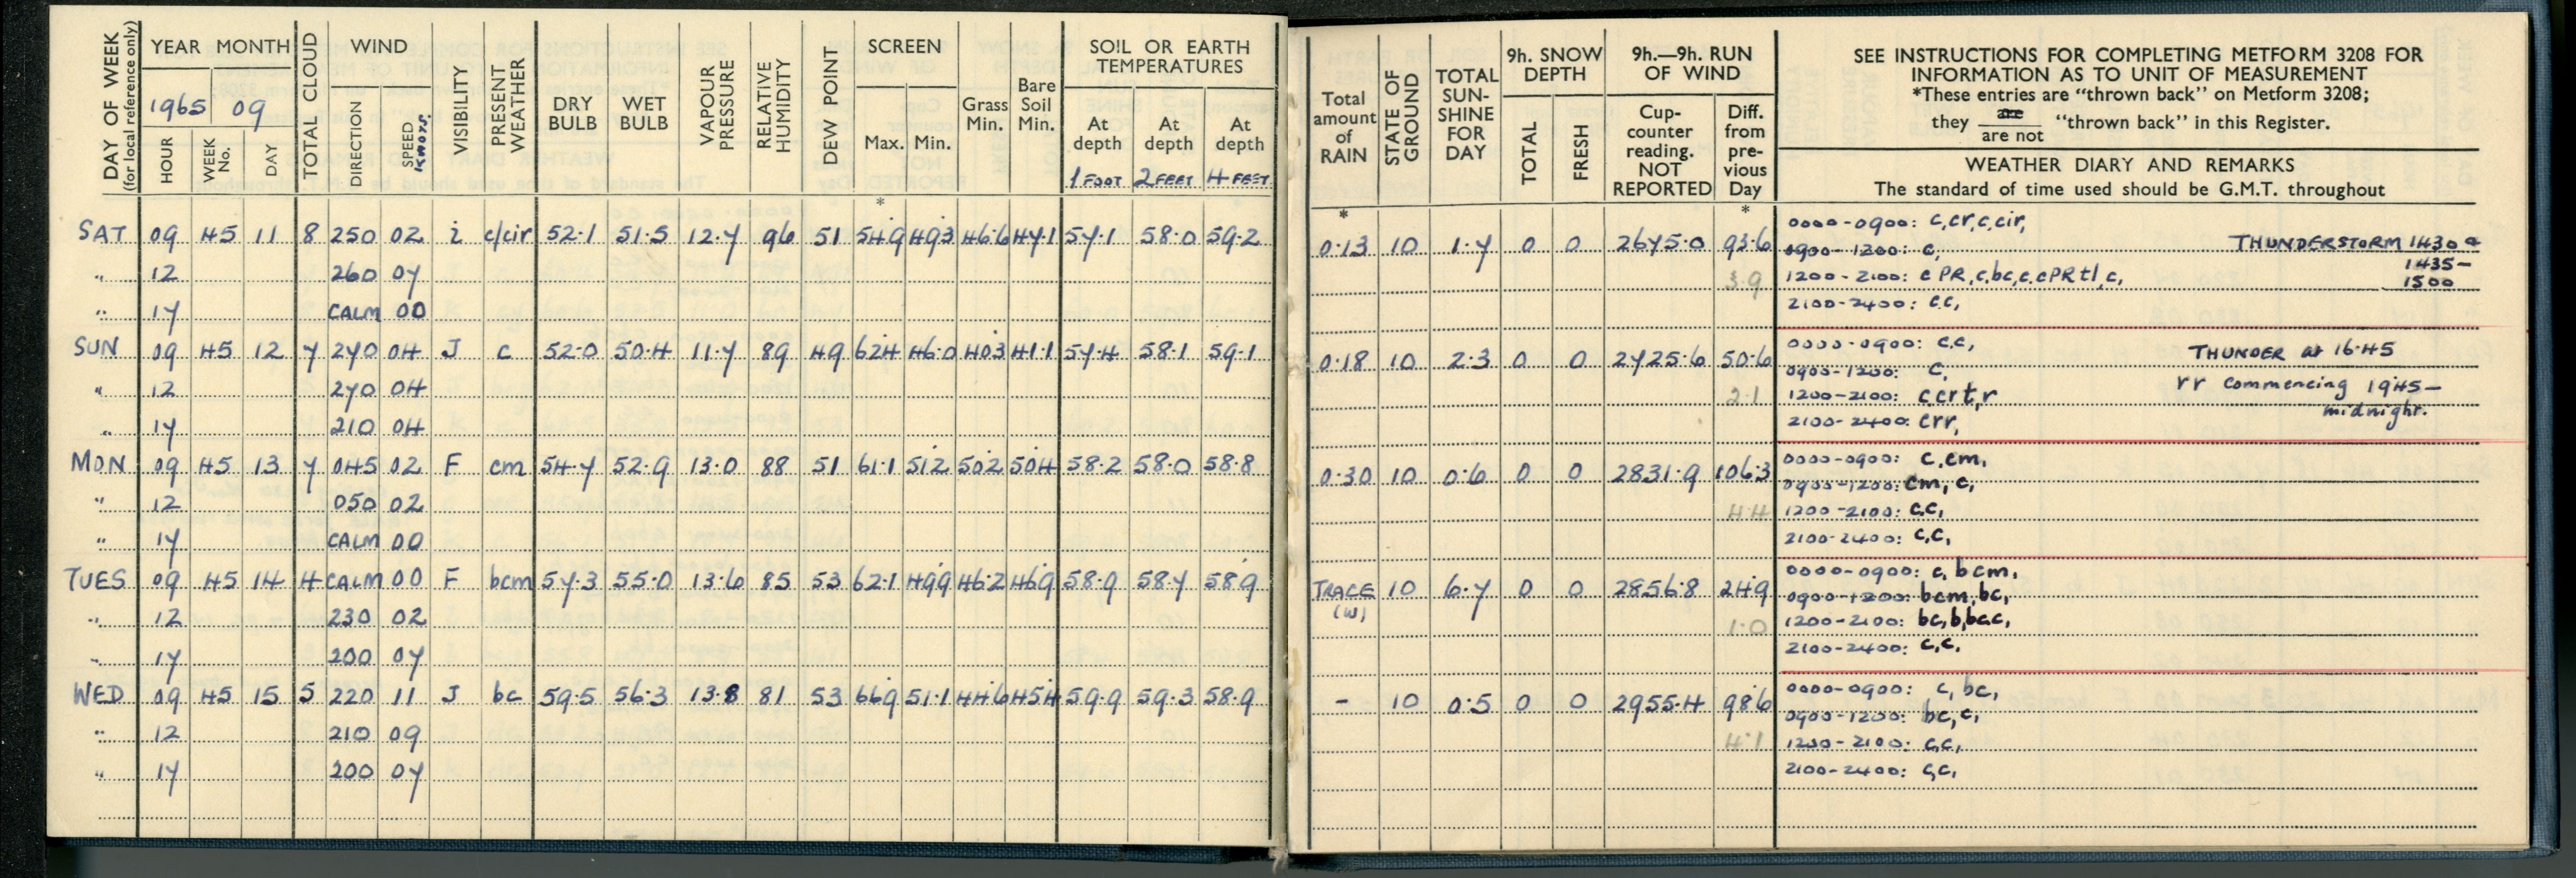 DAY OF WEEK (for local reference only)
YEAR MONTH
1965 09
HOUR WEEK No. DAY
TOTAL CLOUD
WIND
DIRECTION SPEED KNOTS.
VISIBILITY
PRESENT WEATHER
DRY BULB WET BULB
VAPOUR PRESSURE
RELATIVE HUMIDITY
DEW POINT
SCREEN
Max. Min.
Grass Min.
Bare Soil Min.
SOIL OR EARTH TEMPERATURES
At depth At depth At depth
1 FOOT 2 FEET 4 FEET
*
SAT 09 45 11 8 250 02 i c/cir 52.1 51.5 12.7 96 51 54.9 49.3 46.6 47.1 57.1 58.0 59.2
" 12 260 07
" 17 CALM 00
SUN 09 45 12 7 270 04 J c 52.0 50.4 11.7 89 49 62.4 46.0 40.3 41.1 57.4 58.1 59.1
" 12 270 04
" 17 210 04
MON 09 45 13 7 045 02 F cm 54.7 52.9 13.0 88 51 61.1 51.2 50.2 50.4 58.2 58.0 58.8
" 12 050 02
" 17 CALM 00
TUES 09 45 14 4 CALM 00 F bcm 57.3 55.0 13.6 85 53 62.1 49.9 46.2 46.9 58.9 58.7 58.9
" 12 230 02
" 17 200 07
WED 09 45 15 5 220 11 J bc 59.5 56.3 13.8 81 53 66.9 51.1 44.6 45.4 59.9 59.3 58.9
" 12 210 09
" 17 200 07
Total amount of RAIN
STATE OF GROUND
TOTAL SUN-SHINE FOR DAY
9h. SNOW DEPTH
TOTAL FRESH
9h.—9h. RUN OF WIND
Cup-counter reading. NOT REPORTED
Diff. from pre-vious Day
SEE INSTRUCTIONS FOR COMPLETING METFORM 3208 FOR
INFORMATION AS TO UNIT OF MEASUREMENT
*These entries are "thrown back" on Metform 3208;
they are / are not "thrown back" in this Register.
WEATHER DIARY AND REMARKS
The standard of time used should be G.M.T. throughout
* *
0.13 10 1.7 0 0 2675.0 93.6
3.9
0000-0900: c,cr,c,cir,
0900-1200: c,
THUNDERSTORM 1430 &
1200-2100: c PR,c,bc,c,cPR tl,c,
1435-
1500
2100-2400: c.c,
0.18 10 2.3 0 0 2725.6 50.6
2.1
0000-0900: c.c,
0900-1200: c,
THUNDER at 16.45
1200-2100: c,crt,r
rr commencing 1945-
midnight.
2100-2400: crr,
0.30 10 0.6 0 0 2831.9 106.3
4.4
0000-0900: c,cm,
0900-1200: cm, c,
1200-2100: c,c,
2100-2400: c,c,
TRACE (W) 10 6.7 0 0 2856.8 24.9
1.0
0000-0900: c, bcm,
0900-1200: bcm, bc,
1200-2100: bc,b,bc,c,
2100-2400: c,c,
- 10 0.5 0 0 2955.4 98.6
4.1
0000-0900: c, bc,
0900-1200: bc, c,
1200-2100: c,c,
2100-2400: c,c,